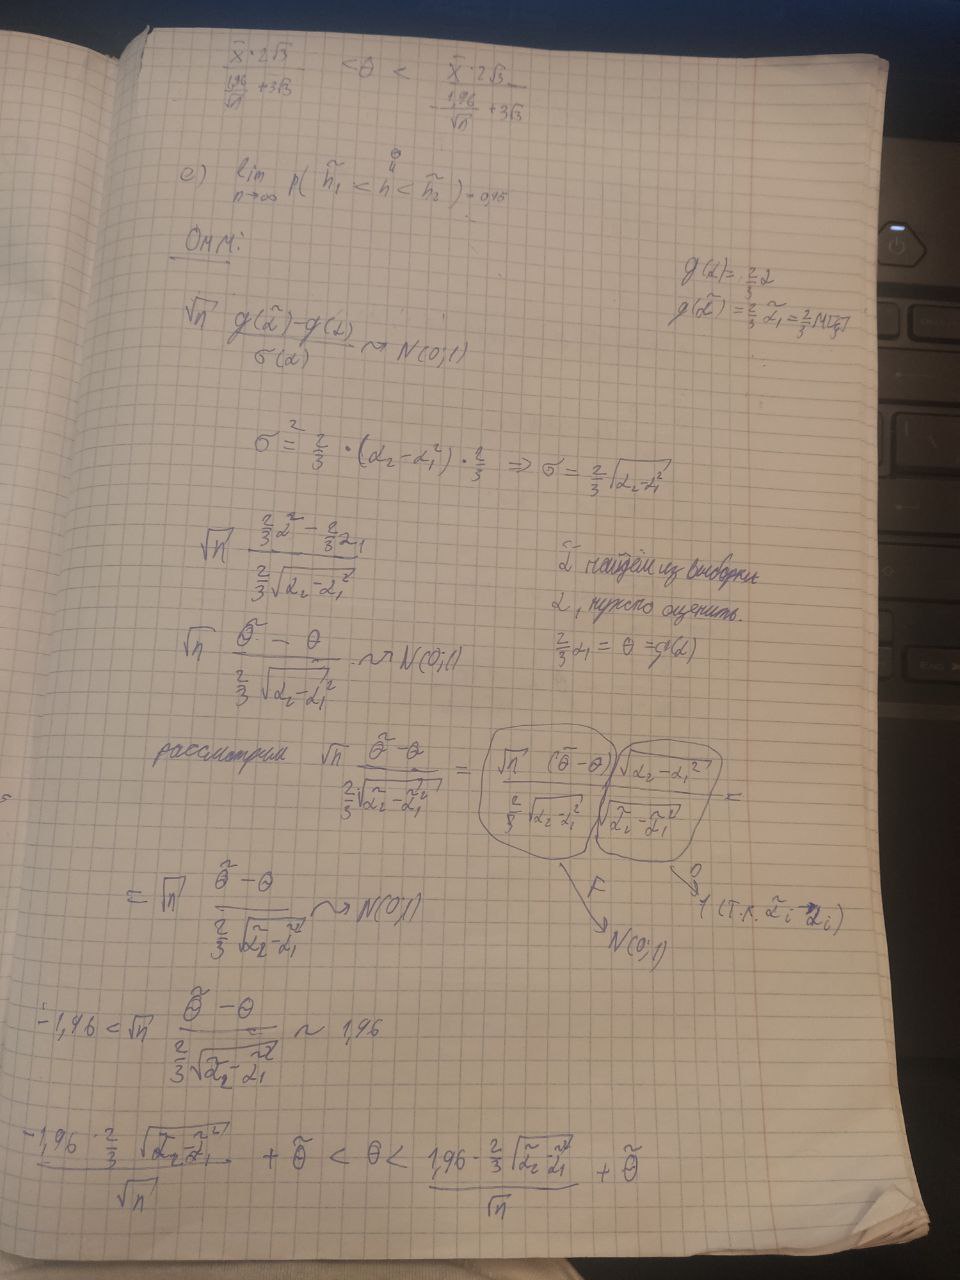 x̄·2√3 / (1,96/√n + 3√3) < θ < x̄·2√3 / (-1,96/√n + 3√3)
e) lim n→∞ P( h̃₁ < h < h̃₂ ) = 0,95
θ
ОММ:
g(α) = 2/3 α
g(α̃) = 2/3 α̃₁ = 2/3
√n (g(α̃) - g(α)) / σ(α) ⇝ N(0;1)
σ² = 2/3 · (α₂ - α₁²) · 2/3 ⇒ σ = 2/3 √(α₂ - α₁²)
√n (2/3 α̃ - 2/3 α₁) / (2/3 √(α₂ - α₁²))
α̃ найдём из выборки
α₁ нужно оценить.
2/3 α₁ = θ = g(α)
√n (θ̃ - θ) / (2/3 √(α₂ - α₁²)) ⇝ N(0;1)
рассмотрим √n (θ̃ - θ) / (2/3 √(α̃₂ - α̃₁²)) = √n (θ̃ - θ) / (2/3 √(α₂ - α₁²)) √(α₂ - α₁²) / √(α̃₂ - α̃₁²) =
F
N(0;1)
1 (т.к. α̃ᵢ → αᵢ)
= √n (θ̃ - θ) / (2/3 √(α̃₂ - α̃₁²)) ⇝ N(0;1)
-1,96 < √n (θ̃ - θ) / (2/3 √(α̃₂ - α̃₁²)) ~ 1,96
-1,96 · 2/3 √(α̃₂ - α̃₁²) / √n + θ̃ < θ < 1,96 · 2/3 √(α̃₂ - α̃₁²) / √n + θ̃